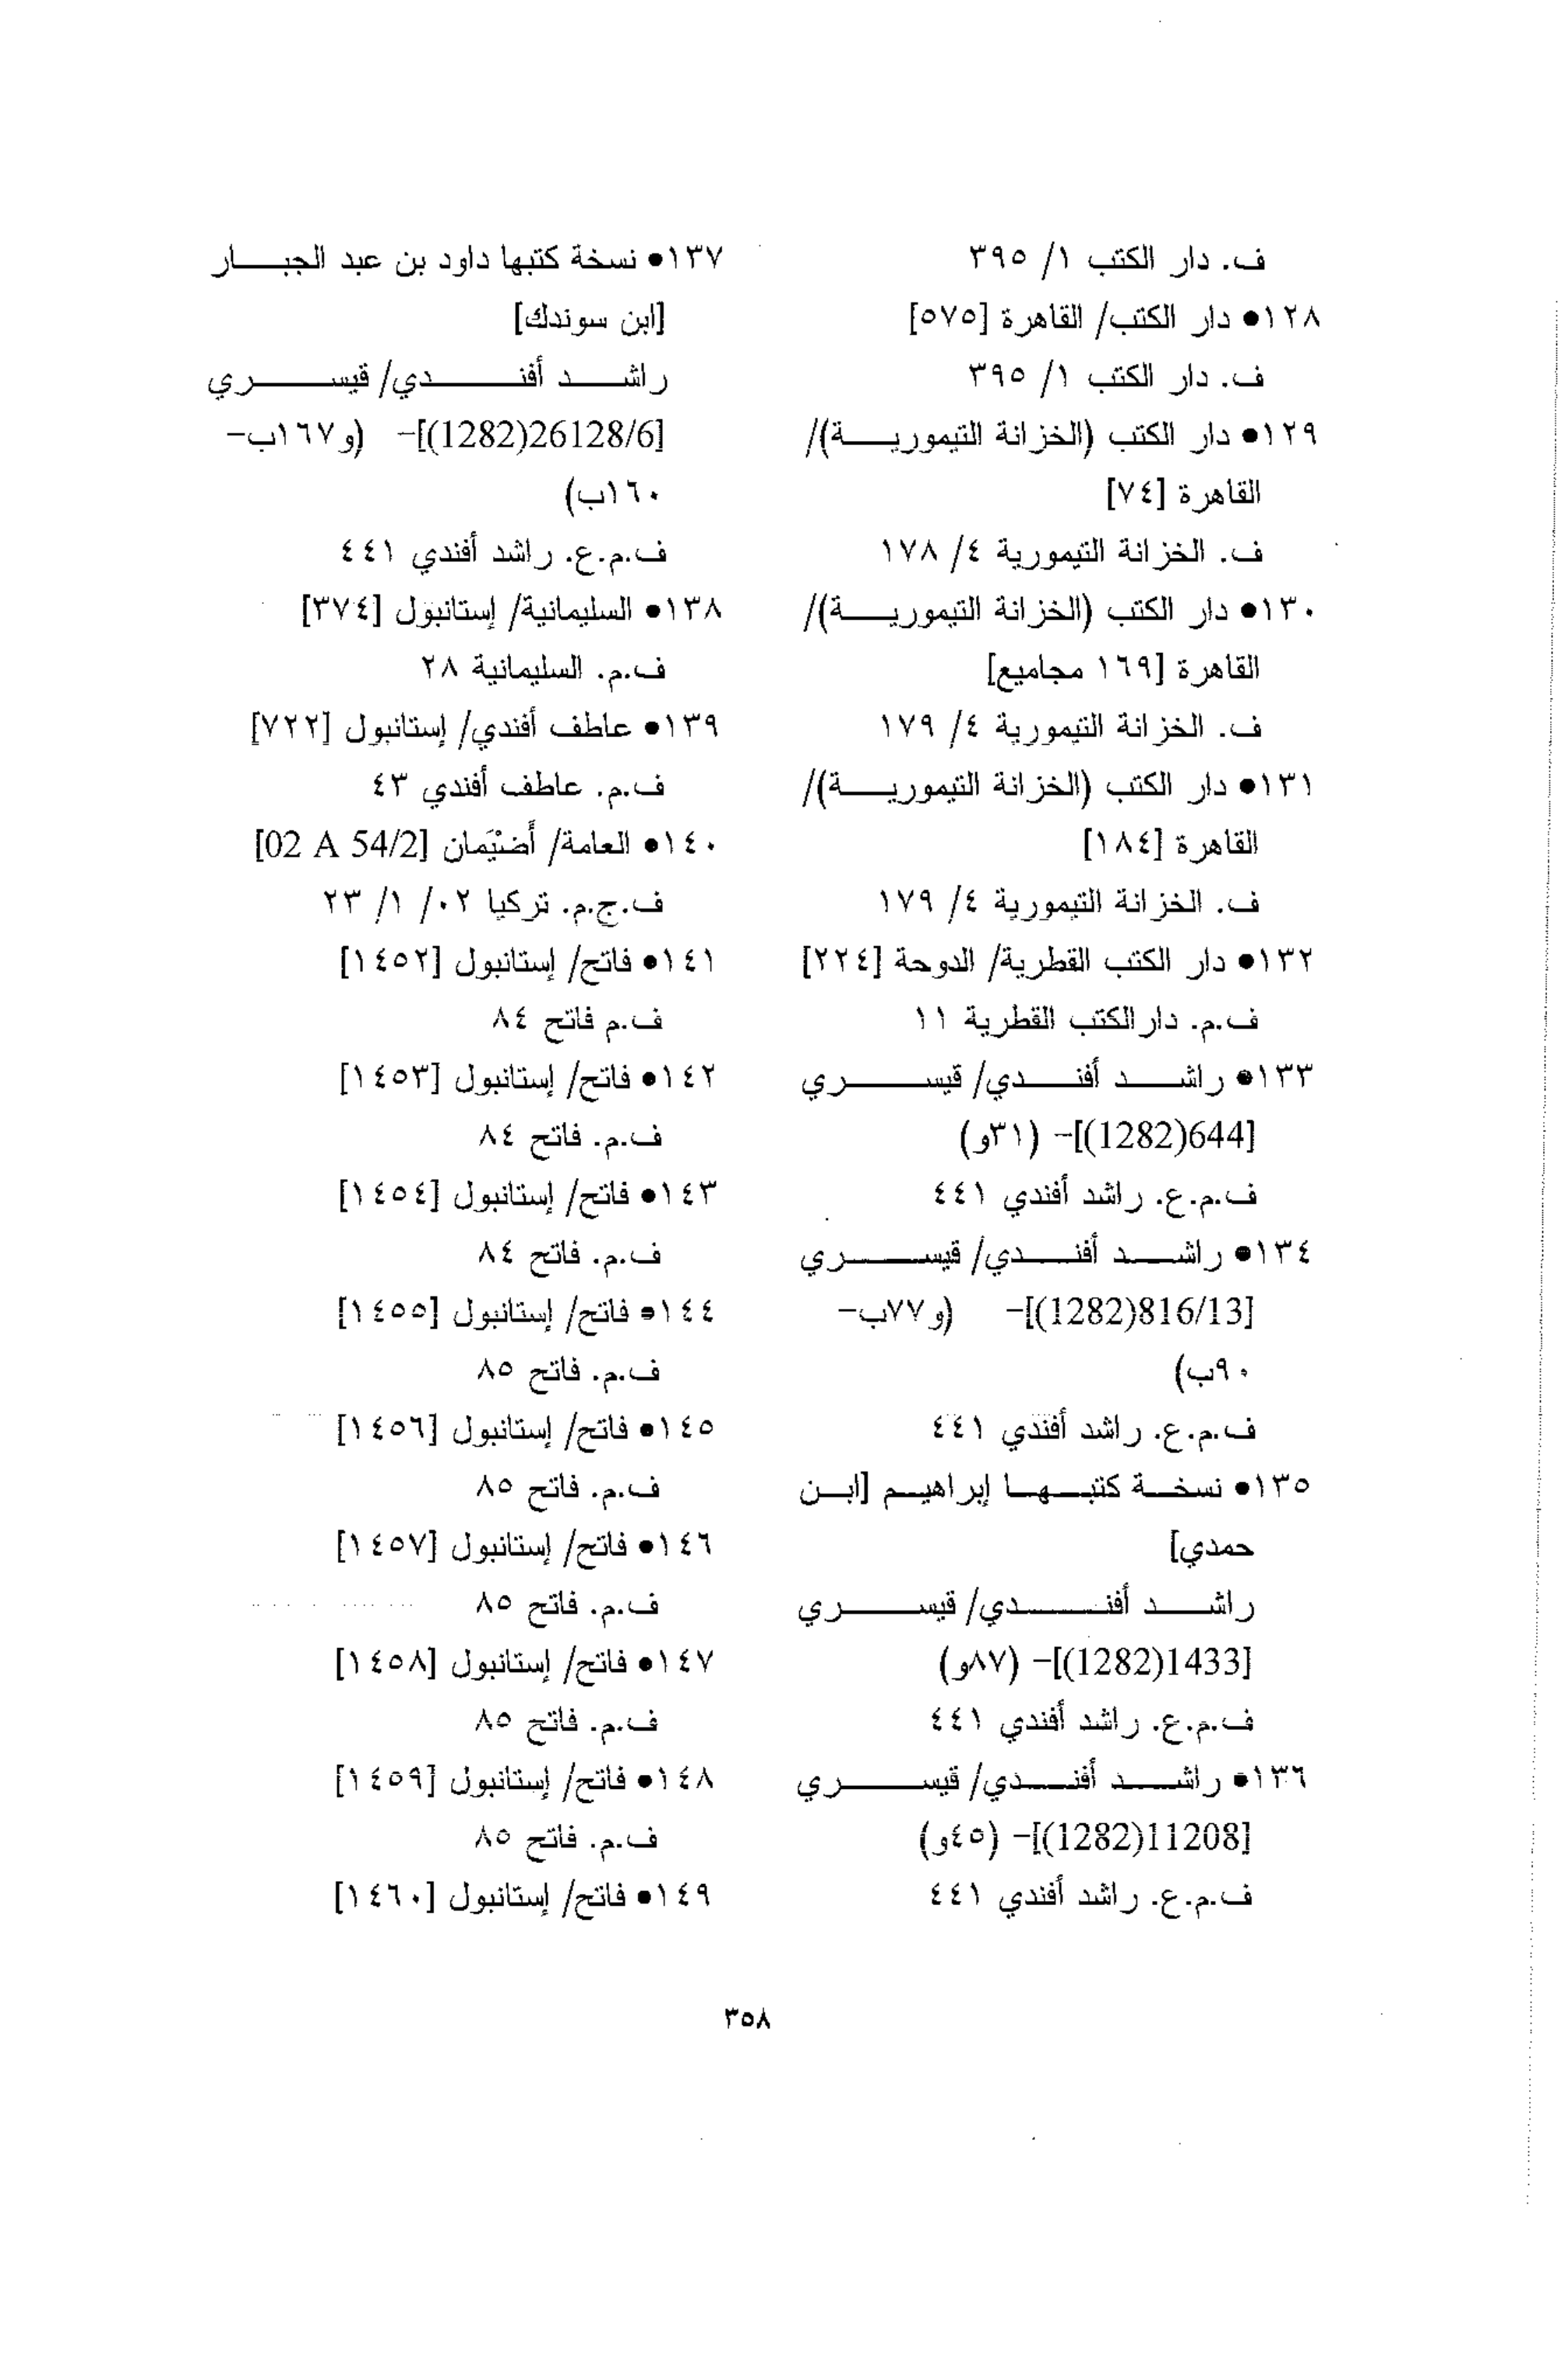 ف. دار الكتب ١/ ٣٩٥
١٢٨• دار الكتب/ القاهرة [٥٧٥]
ف. دار الكتب ١/ ٣٩٥
١٢٩• دار الكتب (الخزانة التيمورية)/
القاهرة [٧٤]
ف. الخزانة التيمورية ٤/ ١٧٨
١٣٠• دار الكتب (الخزانة التيمورية)/
القاهرة [١٦٩ مجاميع]
ف. الخزانة التيمورية ٤/ ١٧٩
١٣١• دار الكتب (الخزانة التيمورية)/
القاهرة [١٨٤]
ف. الخزانة التيمورية ٤/ ١٧٩
١٣٢• دار الكتب القطرية/ الدوحة [٢٢٤]
ف.م. دارالكتب القطرية ١١
١٣٣• راشد أفندي/ قيسري
[644(1282)]- (٣١و)
ف.م.ع. راشد أفندي ٤٤١
١٣٤• راشد أفندي/ قيسري
[816/13(1282)]- (و٧٧ب-
٩٠ب)
ف.م.ع. راشد أفندي ٤٤١
١٣٥• نسخة كتبها إبراهيم [ابن
حمدي]
راشد أفندي/ قيسري
[1433(1282)]- (٨٧و)
ف.م.ع. راشد أفندي ٤٤١
١٣٦• راشد أفندي/ قيسري
[11208(1282)]- (٤٥و)
ف.م.ع. راشد أفندي ٤٤١
١٣٧• نسخة كتبها داود بن عبد الجبار
[ابن سوندك]
راشد أفندي/ قيسري
[26128/6(1282)]- (و١٦٧ب-
١٦٠ب)
ف.م.ع. راشد أفندي ٤٤١
١٣٨• السليمانية/ إستانبول [٣٧٤]
ف.م. السليمانية ٢٨
١٣٩• عاطف أفندي/ إستانبول [٧٢٢]
ف.م. عاطف أفندي ٤٣
١٤٠• العامة/ أَضِيَمان [02 A 54/2]
ف.ج.م. تركيا ٠٢/ ١/ ٢٣
١٤١• فاتح/ إستانبول [١٤٥٢]
ف.م فاتح ٨٤
١٤٢• فاتح/ إستانبول [١٤٥٣]
ف.م. فاتح ٨٤
١٤٣• فاتح/ إستانبول [١٤٥٤]
ف.م. فاتح ٨٤
١٤٤• فاتح/ إستانبول [١٤٥٥]
ف.م. فاتح ٨٥
١٤٥• فاتح/ إستانبول [١٤٥٦]
ف.م. فاتح ٨٥
١٤٦• فاتح/ إستانبول [١٤٥٧]
ف.م. فاتح ٨٥
١٤٧• فاتح/ إستانبول [١٤٥٨]
ف.م. فاتح ٨٥
١٤٨• فاتح/ إستانبول [١٤٥٩]
ف.م. فاتح ٨٥
١٤٩• فاتح/ إستانبول [١٤٦٠]
٣٥٨